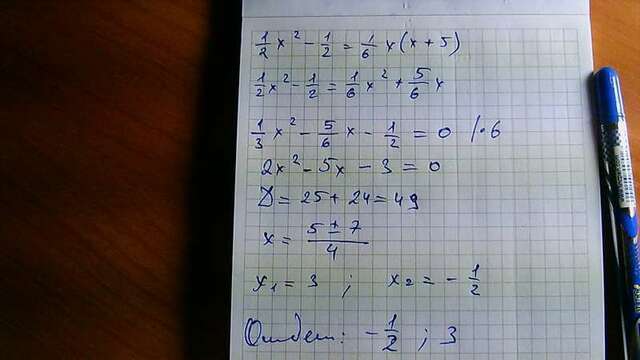 1/2 x² - 1/2 = 1/6 x(x + 5)
1/2 x² - 1/2 = 1/6 x² + 5/6 x
1/3 x² - 5/6 x - 1/2 = 0 /·6
2x² - 5x - 3 = 0
D = 25 + 24 = 49
x = (5 ± 7)/4
x₁ = 3 ; x₂ = - 1/2
Ответ: - 1/2 ; 3